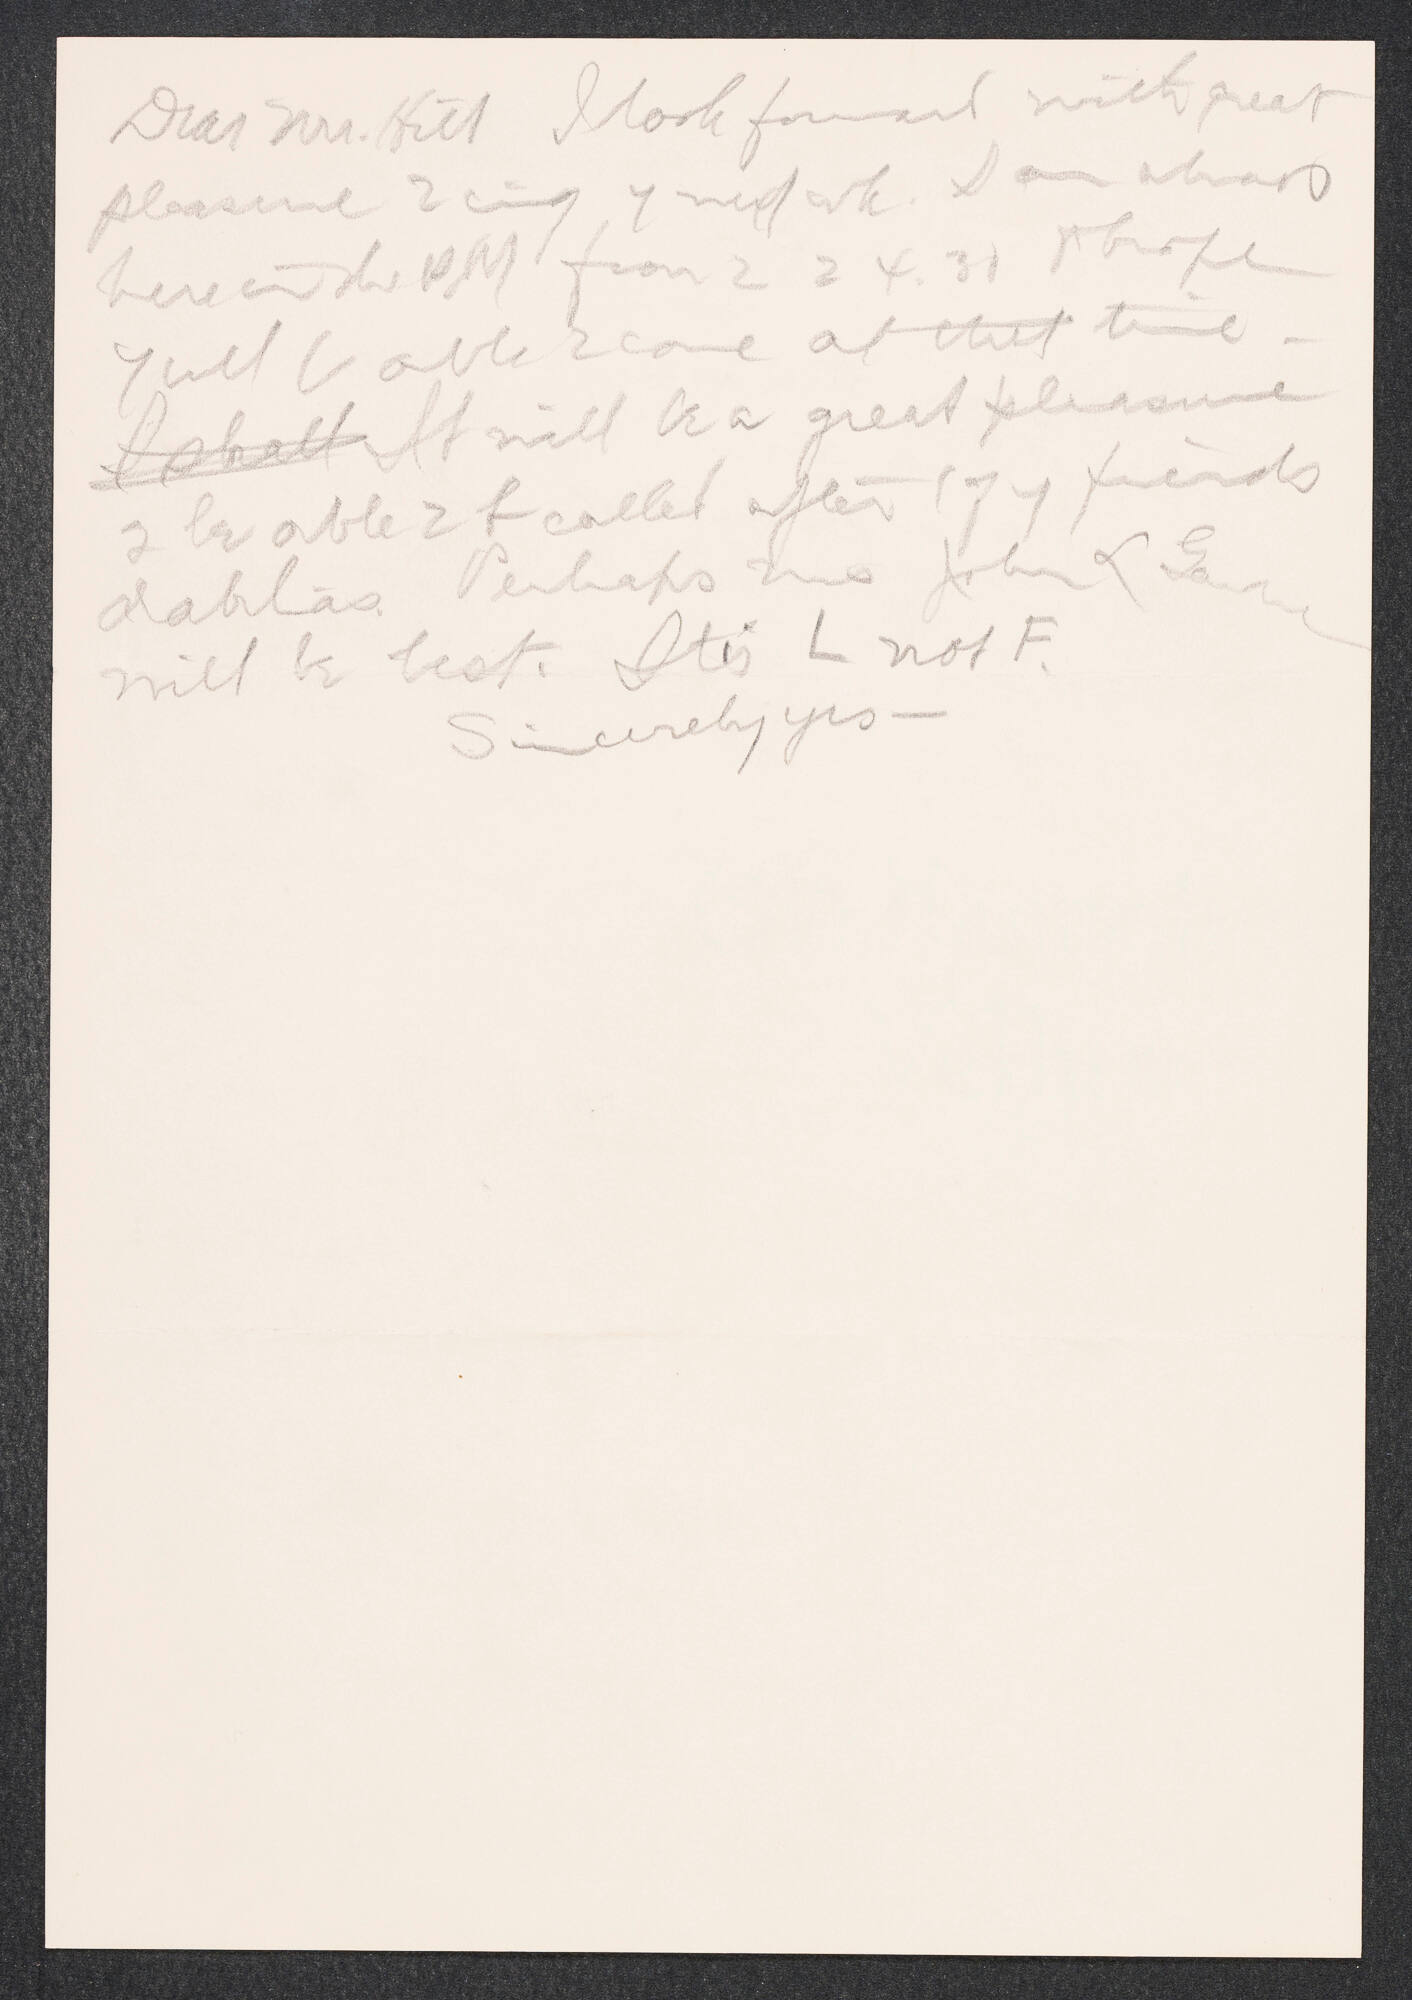 Dear Mrs. Hill I look forward with great
pleasure 2 cing y next wk. I am always
here in the PM from 2 2 4.30 & hope
y will b able 2 come at that time -
I shall It will be a great pleasure
2 be able 2 b called after 1 of y friends
dahlias. Perhaps Mrs John L
will be best. It is L not F.
Sincerely yrs -